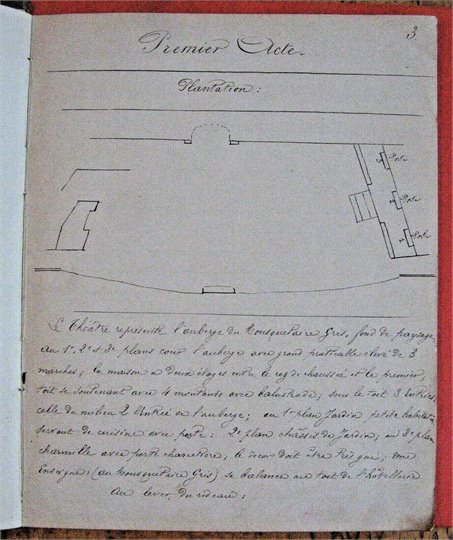 3.
Premier Acte.
Plantation :
Porte
Porte
Porte
Le Théâtre représente l'auberge du Mousquetaire Gris, fond de paysage
au 1er, 2e et 3e plans cour l'auberge avec grand praticable élevé de 3
marches ; la maison a deux étages entre le rez de chaussée et le premier,
toit se soutenant avec 4 montants avec balustrade ; sous le toit 3 Entrées
celle du milieu l'Entrée de l'auberge ; au 1er plan Jardin petite habitation
servant de cuisine avec porte : 2e plan châssis de Jardin, au 3e plan
charmille avec porte charretière, le décor doit être très gai ; une
Enseigne : (au Mousquetaire Gris) se balance au toit de l'hôtellerie
Au lever du rideau :